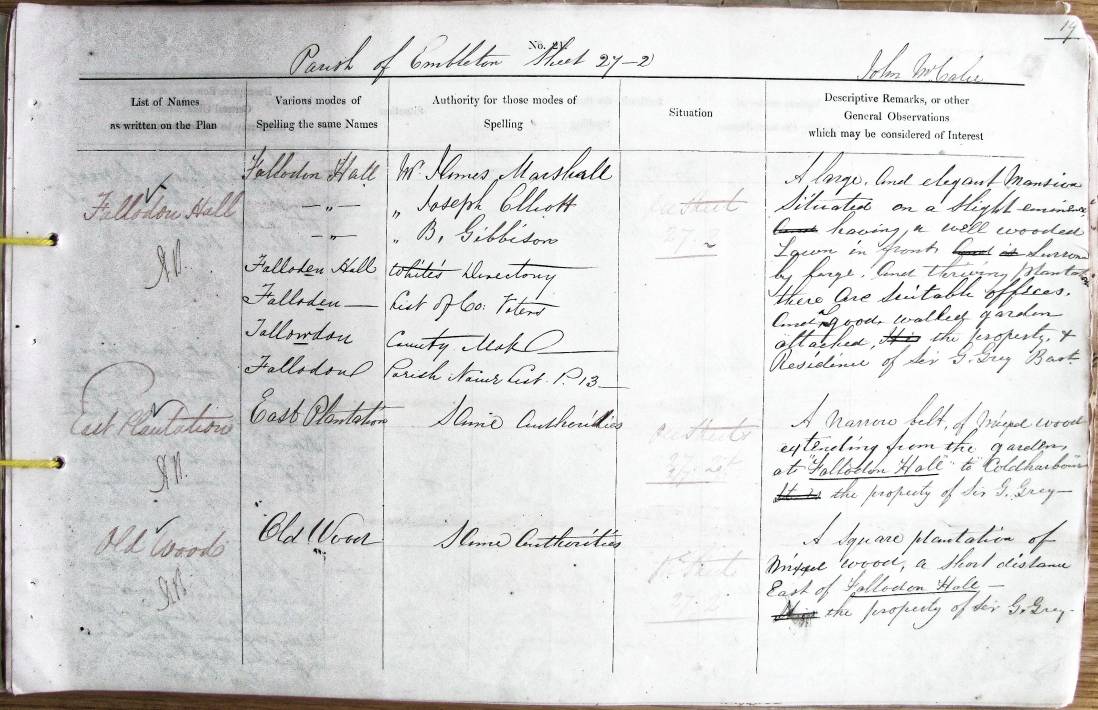 19
No. 21.
Parish of Embleton Sheet 27-2
John McCabe
List of Names
as written on the Plan
Various modes of
Spelling the same Names
Authority for those modes of
Spelling
Situation
Descriptive Remarks, or other
General Observations
which may be considered of Interest
Fallodon Hall
Fallodon Hall
—„—
—„—
Falloden Hall
Falloden —
Fallowdon
Fallodon
Mr. James Marshall
„ Joseph Elliott
„ B. Gibbison
White's Directory
List of Co: Voters
County Map
Parish Name List. P. 13 —
on Sheet
27.2
A large, and elegant Mansion
Situated on a slight eminence
having a well wooded
Lawn in front
by large, and thriving Plantations
there are suitable offices.
and good walled garden
attached, the property, &
Residence of Sir G. Grey Bart.
East Plantation
East Plantation
Same Authorities
on Sheets
27.2
A narrow belt, of mixed wood
extending from the gardens,
at "Fallodon Hall" to "Coldharbour"
It is the property of Sir G. Grey —
Old Wood
Old Wood
Same Authorities
Sheet
27.2
A square plantation of
Mixed wood, a short distance
East of Fallodon Hall —
the property of Sir G. Grey.